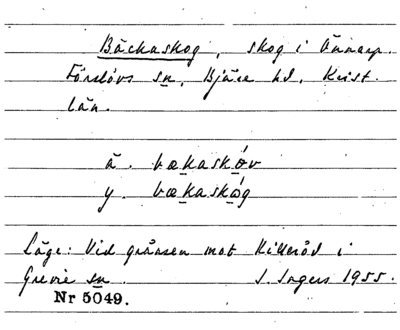 Bäckaskog, skog i Önnarp.
Förslövs sn, Bjäre hd, Krist.
län.
ä. bækaskóv
y. bækaskóg
Läge: Vid gränsen mot Killeröd i
Grevie sn. I. Ingers 1955.
Nr 5049.